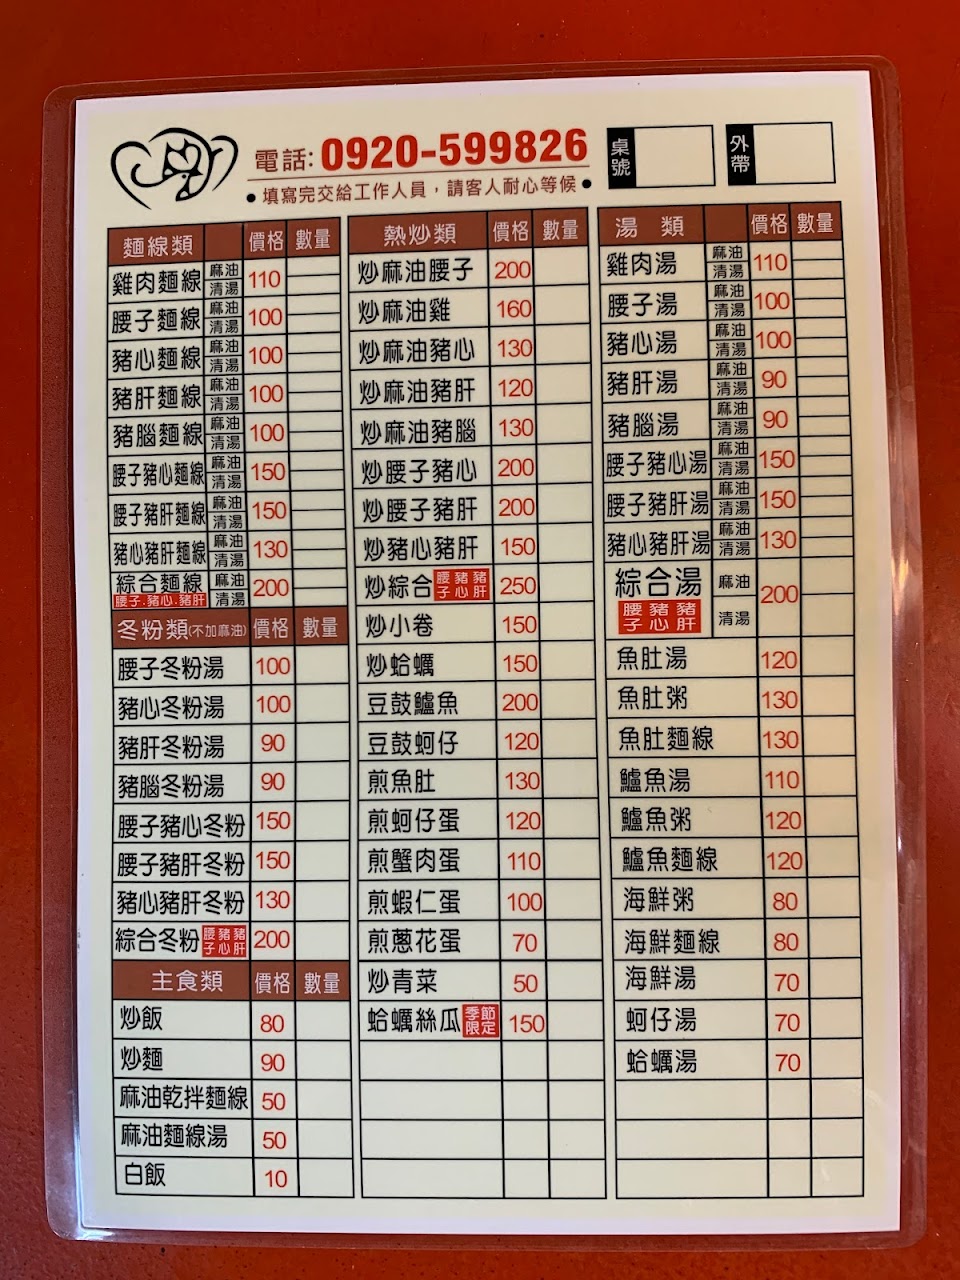 電話: 0920-599826
●填寫完交給工作人員，請客人耐心等候●
桌號
外帶
麵線類 價格 數量
雞肉麵線 麻油 清湯 110
腰子麵線 麻油 清湯 100
豬心麵線 麻油 清湯 100
豬肝麵線 麻油 清湯 100
豬腦麵線 麻油 清湯 100
腰子豬心麵線 麻油 清湯 150
腰子豬肝麵線 麻油 清湯 150
豬心豬肝麵線 麻油 清湯 130
綜合麵線 腰子.豬心.豬肝 麻油 清湯 200
冬粉類(不加麻油) 價格 數量
腰子冬粉湯 100
豬心冬粉湯 100
豬肝冬粉湯 90
豬腦冬粉湯 90
腰子豬心冬粉 150
腰子豬肝冬粉 150
豬心豬肝冬粉 130
綜合冬粉 腰子 豬心 豬肝 200
主食類 價格 數量
炒飯 80
炒麵 90
麻油乾拌麵線 50
麻油麵線湯 50
白飯 10
熱炒類 價格 數量
炒麻油腰子 200
炒麻油雞 160
炒麻油豬心 130
炒麻油豬肝 120
炒麻油豬腦 130
炒腰子豬心 200
炒腰子豬肝 200
炒豬心豬肝 150
炒綜合 腰子 豬心 豬肝 250
炒小卷 150
炒蛤蠣 150
豆鼓鱸魚 200
豆鼓蚵仔 120
煎魚肚 130
煎蚵仔蛋 120
煎蟹肉蛋 110
煎蝦仁蛋 100
煎蔥花蛋 70
炒青菜 50
蛤蠣絲瓜 季節限定 150
湯 類 價格 數量
雞肉湯 麻油 清湯 110
腰子湯 麻油 清湯 100
豬心湯 麻油 清湯 100
豬肝湯 麻油 清湯 90
豬腦湯 麻油 清湯 90
腰子豬心湯 麻油 清湯 150
腰子豬肝湯 麻油 清湯 150
豬心豬肝湯 麻油 清湯 130
綜合湯 腰子 豬心 豬肝 麻油 清湯 200
魚肚湯 120
魚肚粥 130
魚肚麵線 130
鱸魚湯 110
鱸魚粥 120
鱸魚麵線 120
海鮮粥 80
海鮮麵線 80
海鮮湯 70
蚵仔湯 70
蛤蠣湯 70